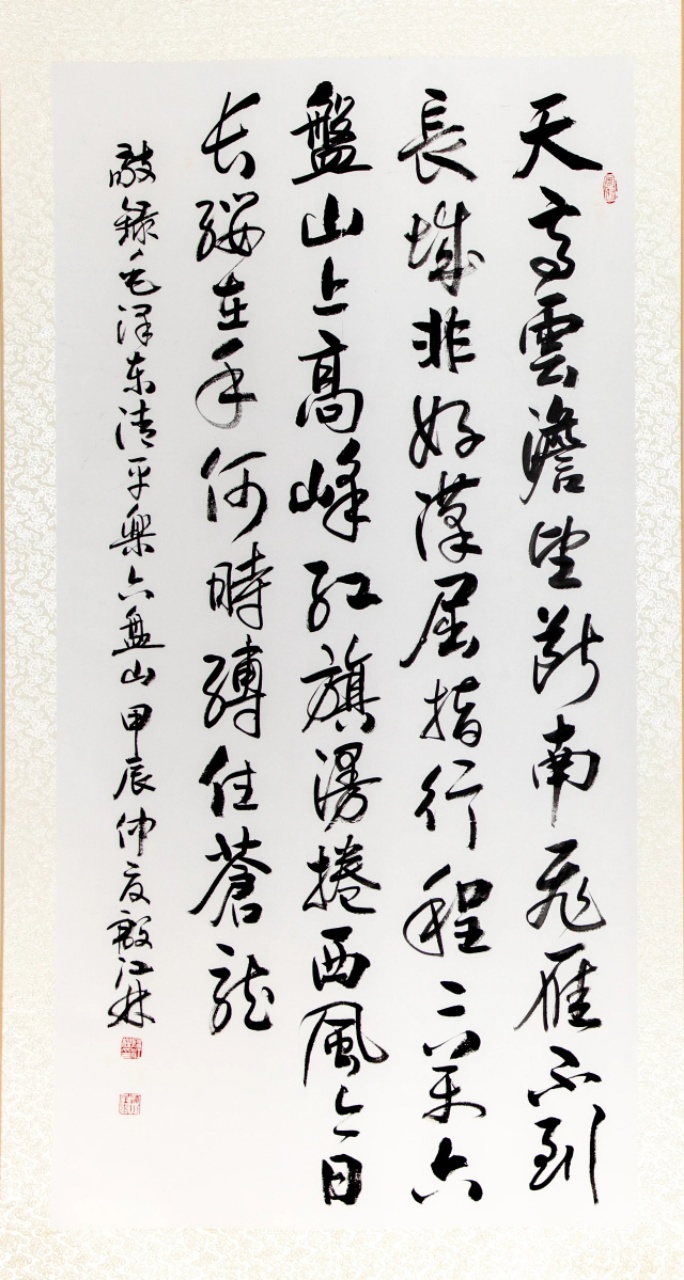 天高雲澹望斷南飛雁不到
長城非好漢屈指行程二萬六
盤山上高峰紅旗漫捲西風今日
长纓在手何時縛住蒼龍
敬錄毛泽东清平樂六盤山甲辰仲夏殷江林